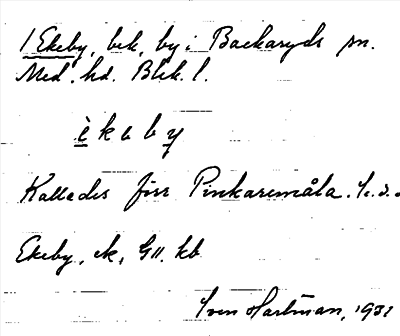 1 Ekeby, bek, by i Backaryds sn.
Med. hd. Blek. l.
è k ɩ b y
Kallades förr Pinkaremåla.
Ekeby, ek, GII. kb
Sven Hartman, 1931